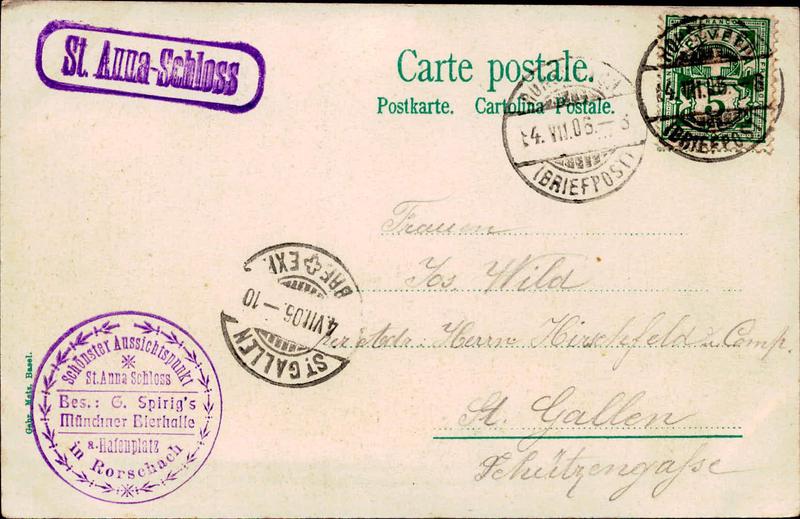 St. Anna-Schloss
Carte postale.
Postkarte. Cartolina Postale.
4. VII. 06. – 6
(BRIEFPOST)
5
FRANCO
4. VII. 06.
(BRIEFPOST)
BRF. EXP.
4. VII. 06. – 10
ST. GALLEN
Frauen
Jos. Wild
per Adr. Herrn Hirschfeld u. Comp.
St. Gallen
Schützengaße
Schönster Aussichtspunkt
St. Anna Schloss
Bes.: G. Spirig's
Münchner Bierhalle
a. Hafenplatz
in Rorschach
Gebr. Metz, Basel.